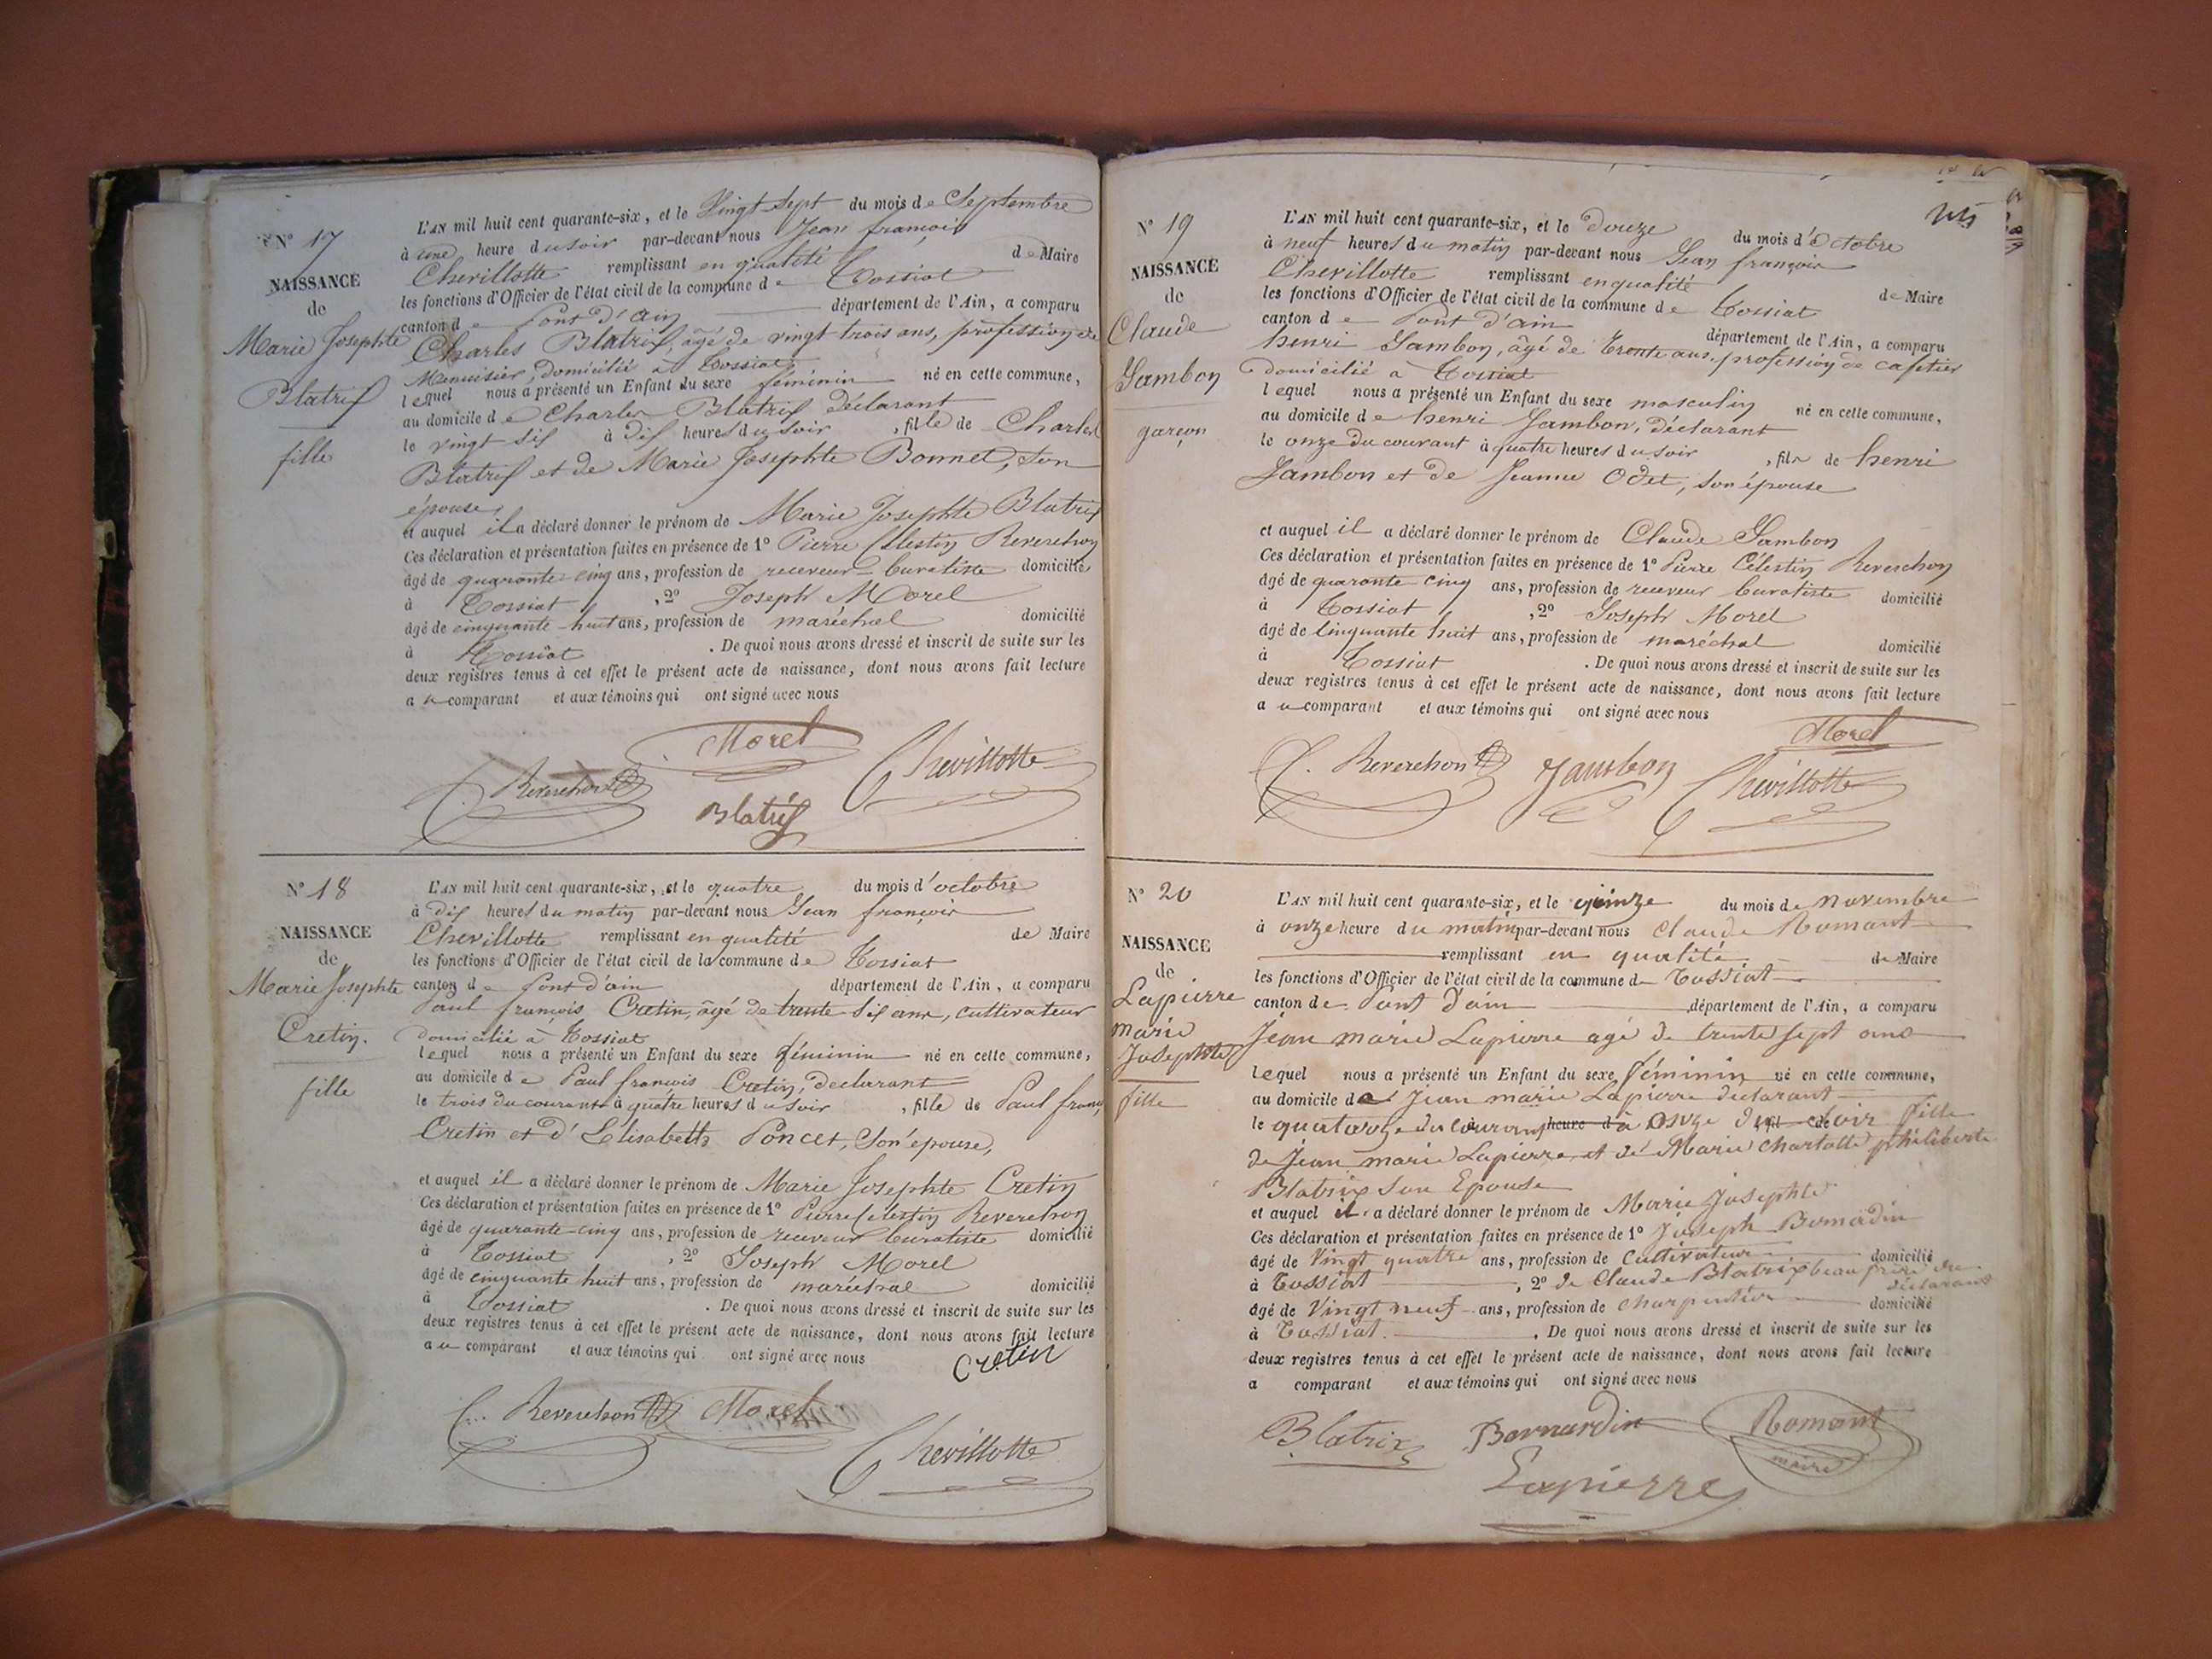 N° 17
NAISSANCE
de
Marie Josephte
Blatrix
fille
L'AN mil huit cent quarante-six, et le Vingt-Sept du mois de Septembre
à une heure du soir par-devant nous Jean françois
Chevillotte remplissant en qualité de Maire
les fonctions d'Officier de l'état civil de la commune de Tossiat
canton de Pont d'ain département de l'Ain, a comparu
Charles Blatrix, âgé de vingt trois ans, profession de
Menuisier, domicilié à Tossiat
lequel nous a présenté un Enfant du sexe féminin né en cette commune,
au domicile de Charles Blatrix déclarant
le vingt six à dix heures du soir, fille de Charles
Blatrix et de Marie Josephte Bonnet, son
épouse,
et auquel il a déclaré donner le prénom de Marie Josephte Blatrix
Ces déclaration et présentation faites en présence de 1° Pierre Célestin Reverchon
âgé de quarante-cinq ans, profession de receveur buraliste domicilié
à Tossiat, 2° Joseph Morel
âgé de cinquante-huit ans, profession de maréchal domicilié
à Tossiat. De quoi nous avons dressé et inscrit de suite sur les
deux registres tenus à cet effet le présent acte de naissance, dont nous avons fait lecture
au comparant et aux témoins qui ont signé avec nous
Morel
C. Reverchon
Chevillotte
Blatrix
N° 18
NAISSANCE
de
Marie Josephte
Cretin.
fille
L'AN mil huit cent quarante-six, et le quatre du mois d'octobre
à dix heures du matin par-devant nous Jean françois
Chevillotte remplissant en qualité de Maire
les fonctions d'Officier de l'état civil de la commune de Tossiat
canton de Pont d'ain département de l'Ain, a comparu
Paul françois Cretin, âgé de trente six ans, cultivateur
domicilié à Tossiat
lequel nous a présenté un Enfant du sexe féminin né en cette commune,
au domicile de Paul françois Cretin, declarant
le trois du courant à quatre heures du soir, fille de Paul franç
Cretin et d'Elisabeth Poncet, son épouse,
et auquel il a déclaré donner le prénom de Marie Josephte Cretin
Ces déclaration et présentation faites en présence de 1° Pierre Celestin Reverchon
âgé de quarante-cinq ans, profession de receveur buraliste domicilié
à Tossiat, 2° Joseph Morel
âgé de cinquante huit ans, profession de maréchal domicilié
à Tossiat. De quoi nous avons dressé et inscrit de suite sur les
deux registres tenus à cet effet le présent acte de naissance, dont nous avons fait lecture
au comparant et aux témoins qui ont signé avec nous
Cretin
C. Reverchon Morel
Chevillotte
N° 19
NAISSANCE
de
Claude
Jambon
garçon
L'AN mil huit cent quarante-six, et le douze du mois d'Octobre
à neuf heures du matin par-devant nous Jean françois
Chevillotte remplissant en qualité de Maire
les fonctions d'Officier de l'état civil de la commune de Tossiat
canton de Pont d'ain département de l'Ain, a comparu
henri Jambon, âgé de trente ans, profession de
domicilié à Tossiat
lequel nous a présenté un Enfant du sexe masculin né en cette commune,
au domicile de henri Jambon, déclarant
le onze du courant à quatre heures du soir, fils de henri
Jambon et de Jeanne Odet, son épouse
et auquel il a déclaré donner le prénom de Claude Jambon
Ces déclaration et présentation faites en présence de 1° Pierre Célestin Reverchon
âgé de quarante cinq ans, profession de receveur buraliste domicilié
à Tossiat, 2° Joseph Morel
âgé de Cinquante huit ans, profession de maréchal domicilié
à Tossiat. De quoi nous avons dressé et inscrit de suite sur les
deux registres tenus à cet effet le présent acte de naissance, dont nous avons fait lecture
au comparant et aux témoins qui ont signé avec nous
Morel
C. Reverchon Jambon Chevillotte
N° 20
NAISSANCE
de
Lapierre
marie
Josephte
fille
L'AN mil huit cent quarante-six, et le quinze du mois de novembre
à onze heure du matin par-devant nous Claude Romant
remplissant en qualité de Maire
les fonctions d'Officier de l'état civil de la commune de Tossiat
canton de Pont d'ain département de l'Ain, a comparu
Jean marie Lapierre agé de trente sept ans
lequel nous a présenté un Enfant du sexe féminin né en cette commune,
au domicile de Jean marie Lapierre declarant
le quatorze du courant heure d à onze du soir fille
de Jean marie Lapierre et de Marie Charlotte philiberte
Blatrix son Epouse
et auquel il a déclaré donner le prénom de Marie Josephte
Ces déclaration et présentation faites en présence de 1° Joseph Bernardin
âgé de Vingt quatre ans, profession de Cultivateur domicilié
à Tossiat, 2° de Claude Blatrix beau frère du
déclarant
âgé de Vingt neuf ans, profession de charpentier domicilié
à Tossiat. De quoi nous avons dressé et inscrit de suite sur les
deux registres tenus à cet effet le présent acte de naissance, dont nous avons fait lecture
a comparant et aux témoins qui ont signé avec nous
Blatrix Bernardin Romant
maire
Lapierre